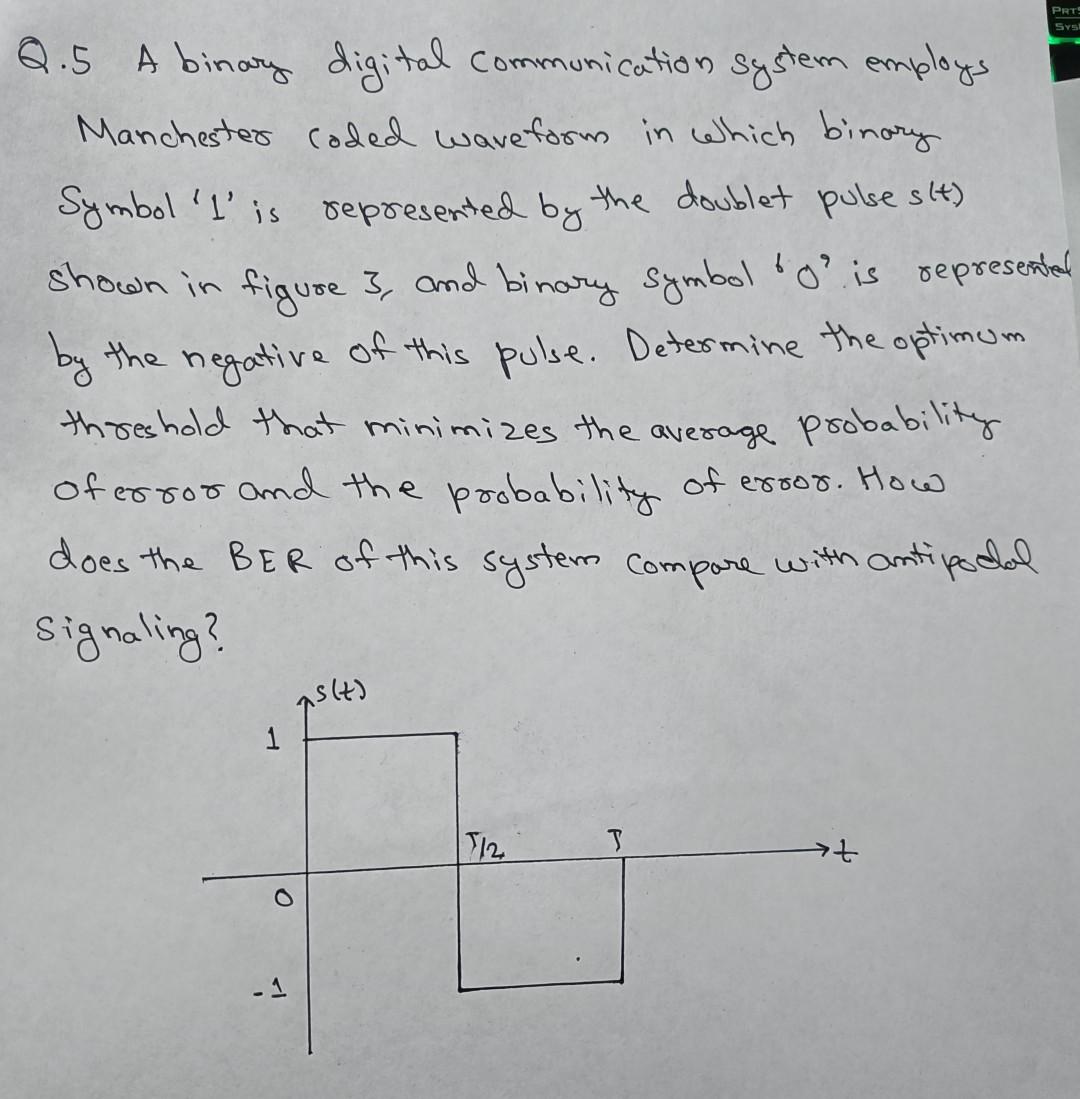 PRTS
SYS
Q.5 A binary digital communication system employs
Manchester coded waveform in which binary
Symbol '1' is represented by the doublet pulse s(t)
shown in figure 3, and binary symbol '0' is represented
by the negative of this pulse. Determine the optimum
threshold that minimizes the average probability
of error and the probability of error. How
does the BER of this system compare with antipodal
signaling?
s(t)
1
T/2
T
t
0
-1